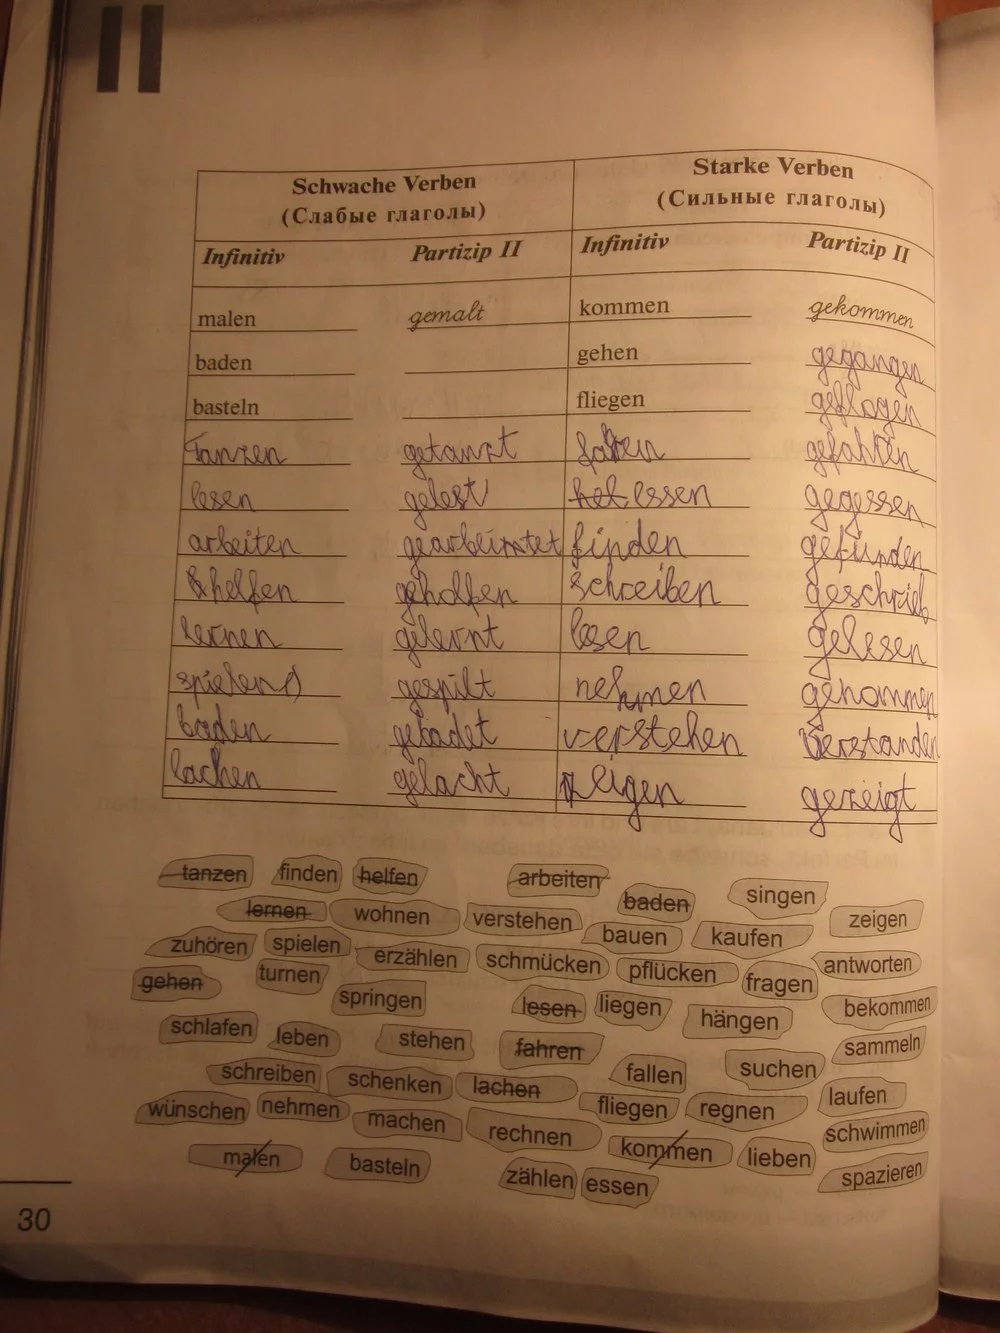 II
Schwache Verben Starke Verben
(Слабые глаголы) (Сильные глаголы)
Infinitiv Partizip II Infinitiv Partizip II
malen gemalt kommen gekommen
baden gehen gegangen
basteln fliegen geflogen
tanzen getanzt gefahren
lesen gelest essen gegessen
arbeiten finden gefunden
helfen geholfen schreiben geschrieb
lernen gelernt lesen gelesen
spielen gespilt nehmen genommen
baden gebadet verstehen verstanden
lachen gelacht zeigen gezeigt
tanzen finden helfen arbeiten baden singen
lernen wohnen verstehen bauen kaufen zeigen
zuhören spielen erzählen schmücken pflücken fragen antworten
gehen turnen springen lesen liegen hängen bekommen
schlafen leben stehen fahren fallen suchen sammeln
schreiben schenken lachen fliegen regnen laufen
wünschen nehmen machen rechnen kommen lieben schwimmen
malen basteln zählen essen spazieren
30